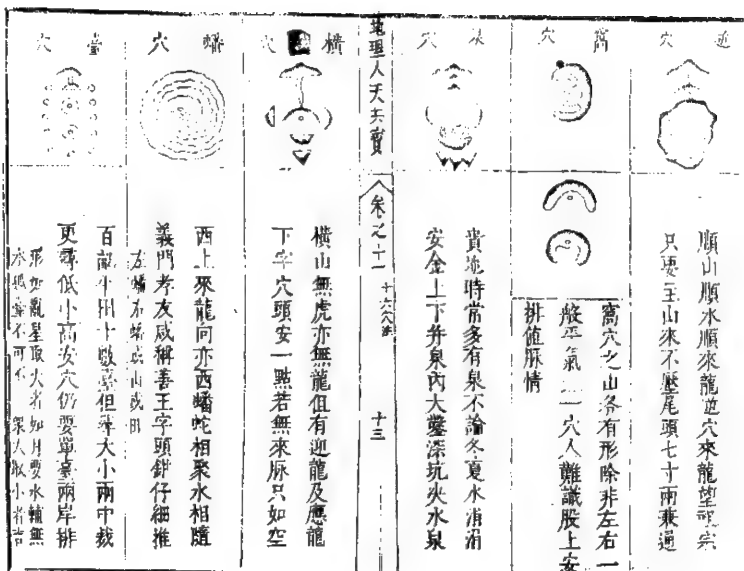 逆穴
順山順水順來龍逆穴來龍望祖宗
只要主山來不壓尾頭七寸兩兼通
窩穴
窩穴之山各有形除非左右一
般平氣一穴人難識股上安
排值脈情
泉穴
貴地時常多有泉不論冬夏水涓涓
安金上下井泉內大鑿深坑決水泉
地理人天共寶
卷之十一
十六穴法
十三
橫穴
橫山無虎亦無龍但有迎龍及應龍
下字穴頭安一點若無來脉只如空
蟠穴
西上來龍向亦西蟠蛇相聚水相隨
義門孝友咸稱善王字頭鉗仔細推
左蟠右蟠或山或田
臺穴
百敲千州十數臺但尋大小兩中裁
更尋低小高安穴仍要單臺兩岸排
形如亂星取大者如月要水輔無
水 不可下 眾大取小者吉